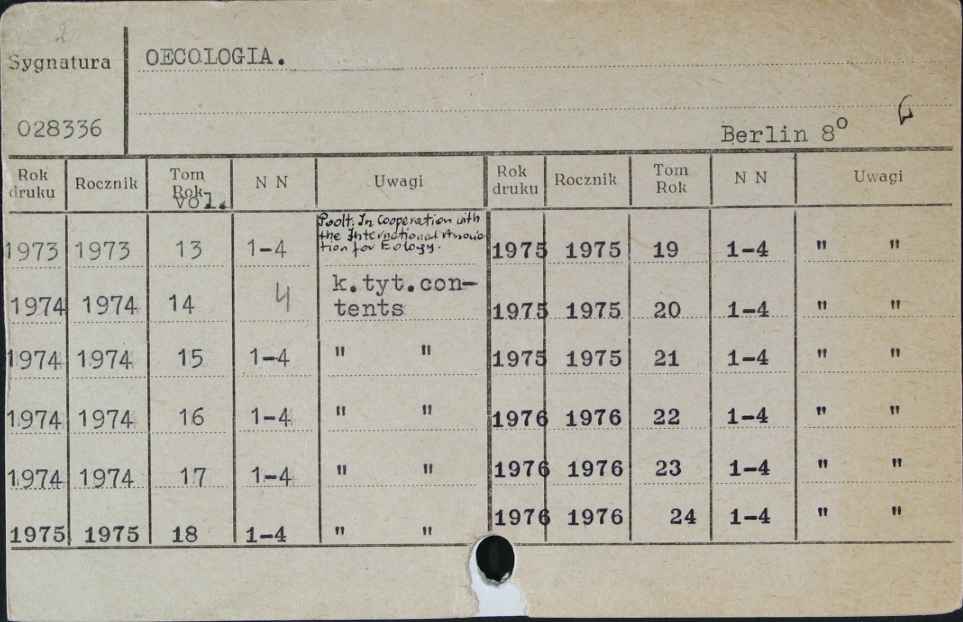 2
Sygnatura OECOLOGIA.
028336
Berlin 8º
Rok druku Rocznik Tom Rok vol. N N Uwagi Rok druku Rocznik Tom Rok N N Uwagi
1973 1973 13 1-4 In Cooperation with the International for 1975 1975 19 1-4 " "
1974 1974 14 4 k.tyt.contents 1975 1975 20 1-4 " "
1974 1974 15 1-4 " " 1975 1975 21 1-4 " "
1974 1974 16 1-4 " " 1976 1976 22 1-4 " "
1974 1974 17 1-4 " " 1976 1976 23 1-4 " "
1975 1975 18 1-4 " " 1976 1976 24 1-4 " "